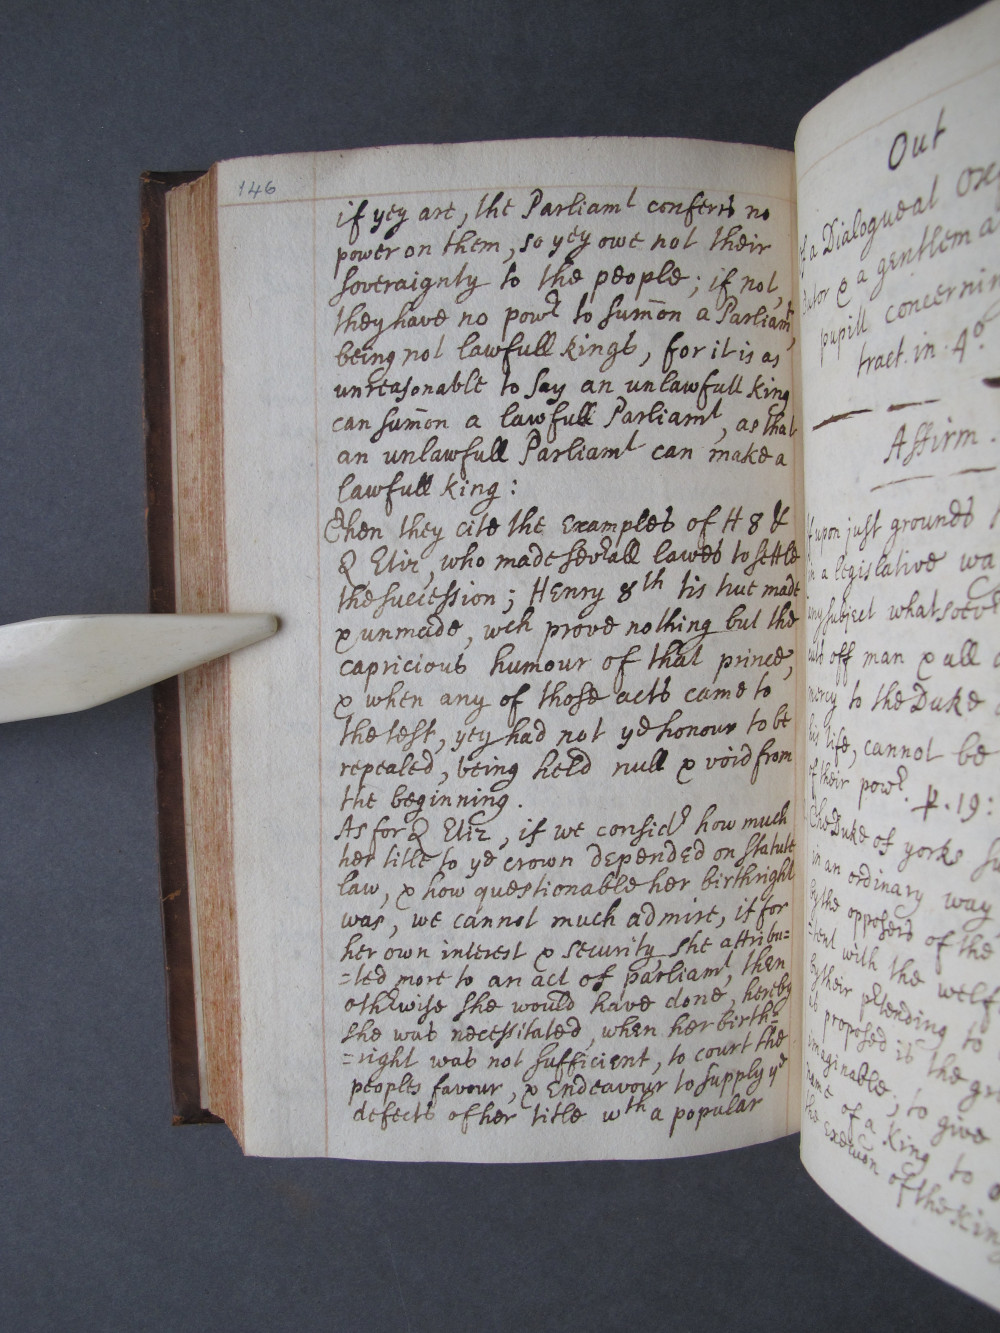 146
if yey are, the Parliamt conferrs no
power on them, so yey owe not their
soveraignty to the people; if not,
they have no powr to sum̄on a Parliamt,
being not lawfull kings, for it is as
unreasonable to say an unlawfull king
can sum̄on a lawfull Parliamt, as that
an unlawfull Parliamt can make a
lawfull king:
Then they cite the Examples of H 8 &
Q Eliz, who made sevrall lawes to settle
the sucession; Henry 8th tis true made
& unmade, wch prove nothing but the
capricious humour of that prince,
& when any of those acts came to
the test, yey had not ye honour to be
repealed, being held null & void from
the beginning.
As for Q Eliz, if we considr how much
her title to ye crown depended on statute
law, & how questionable her birthright
was, we cannot much admire, if for
her own interest & security she attribu=
=ted more to an act of parliamt, then
othrwise she would have done, hereby
she was necessitated, when her birth=
=right was not sufficient, to court the
peoples favour, & Endeavour to supply ye
defects of her title wth a popular
Out
of a Dialogue at
Tutor & a gentleman
pupill concerning
tract. in. 4o
Affirm.
If upon just grounds
in a legislative
any subject whatsoever
off man & all
mercy to the Duke
his life, cannot be
of their powr. p. 19:
The Duke of yorks
in an ordinary way
by the opposers of the
=tent with the
by their prtending to
as proposed is the
imaginable; to give
name of a King to
the execuōn of the King